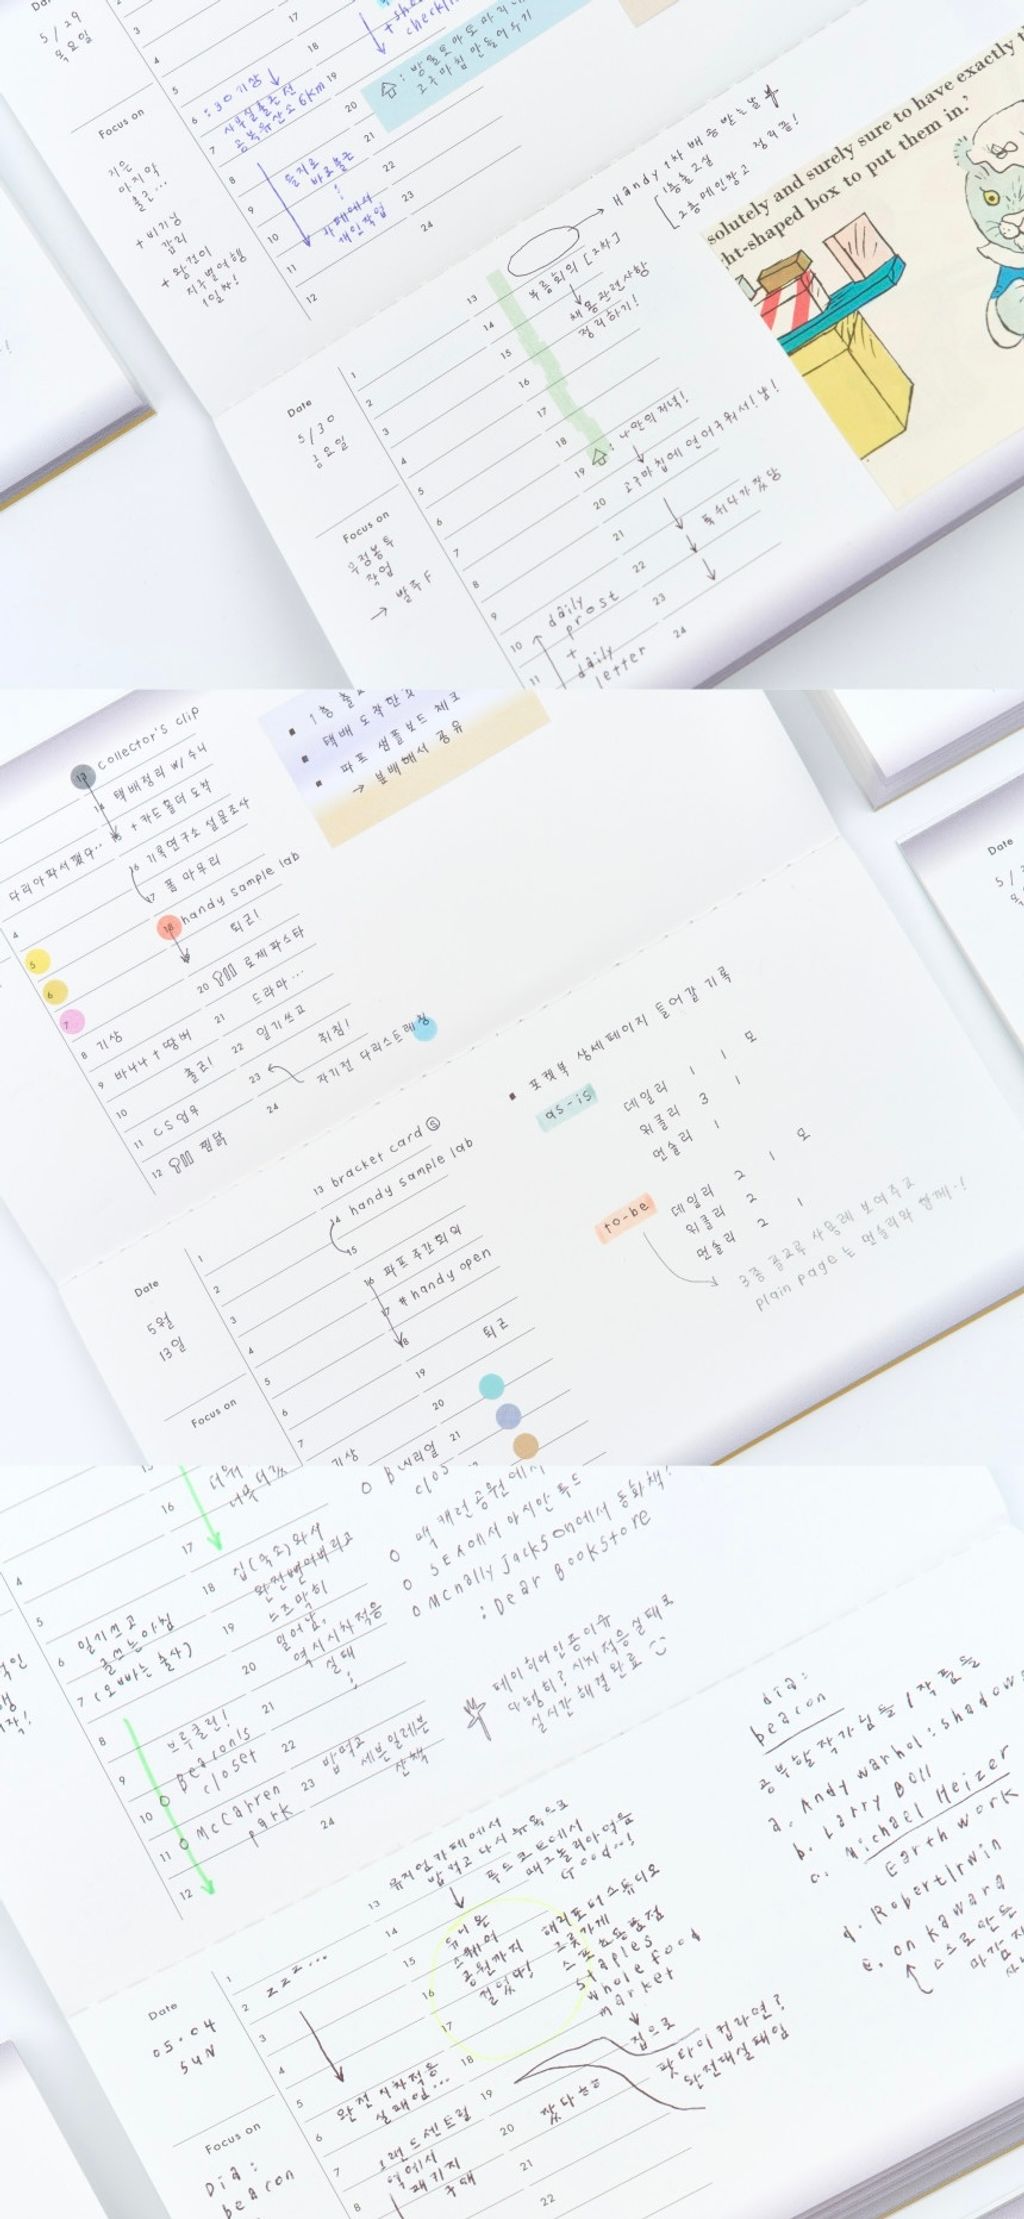 5/29
목요일
Focus on
지은
마지막
출근...
+ 비기닝
감리
+ 왕건이
지구별여행
1일차!
3
4
5
6 :30 기상
사무실출근전
공복유산소 6km
7
8
9
10
11
12
을지로
바로출근
카페에서
개인작업
17
18
19
20
21
22
23
24
checkli
: 방울토마토 마리네
고구마칩 만들어두기
Handy 1차 배송 받는날
1층 눌고실
2층 메인창고 정리끝!
solutely and surely sure to have exactly t
ht-shaped box to put them in.'
Date
5/30
금요일
Focus on
우정봉투
작업
→ 발주 F
1
2
3
4
5
6
7
8
9
10
11
daily
prost
+
daily
letter
13
14
15
16
17
18
19
20
21
22
23
24
부름회의 [2차]
채용관련사항
정리하기!
: 나만의저녁!
고구마칩에 연어구워서! 냠!
푹쉬다가 잤당
13 collector's clip
14 택배정리 w/ 수니
+ 카드홀더 도착
16 기록연구소 설문조사
17 폼 마무리
18 handy sample lab
퇴근!
20 로제파스타
21 드라마...
22 일기쓰고
취침!
23
자기전 다리스트레칭
24
다리아파서 깼다..
4
5
6
7
8 기상
9 바나나 + 땅버
10 출근!
11 CS업무
12 찜닭
택배 도착한
파프 샘플보드 체크
→ 분배해서 공유
Date
5월
13일
Focus on
1
2
3
4
5
6
7
기상
13 bracket card S
14 handy sample lab
15
16 파프 주간회의
17 # handy open
18
퇴근
19
20
21
포켓북 상세페이지 들어갈 기록
as-is
데일리 1 1 모
위클리 3 1
먼슬리 1
to-be
데일리 2 1 모
위클리 2 1
먼슬리 2 1
3종 골고루 사용례 보여주고
plain page는 먼슬리와 함께-!
16
17
18 집(숙소)와서
완전뻗어버리고
19 느즈막히
일어남,
20 역시시차적응
실패
21
22
23 밥먹고
세븐일레븐
산책
24
4
5
6 일기쓰고
글쓰는아침
7 (오빠는 출사)
8
9
10
11
12
브루클린!
Beacon's
closet
McCarren
park
맥캐런 공원에서
SEA에서 아시안 푸드
Mcnally jackson에서 동화책!
: Dear Bookstore
페이히어인증이슈
다행히? 시차적응실패로
실시간 해결완료
Date
05.04
SUN
Focus on
Dia:
beacon
1
2 zzz...
3
4
5
완전 시차적응
실패임...
6
7
8
그랜드센트럴
역에서
패키지
구매
13
뮤지엄카페에서
밥먹고 다시 뉴욕으로
14
15
16
17
18
19
20
21
22
유니온
스퀘어
공원까지
걸었다!
푸드코트에서
Good~!
해리포터 스튜디오
그릇가게
스포츠용품점
staples
whole food
market
집으로
팟타이 컵라면?
완전대실패임
잤다ㅎㅎ
dia:
beacon
공부할 작가님들 / 작품들
a. Andy warhol : shadows
b. Larry Bell
c. Michael Heizer
Earth work
d. Robert Irwin
e. on kawara